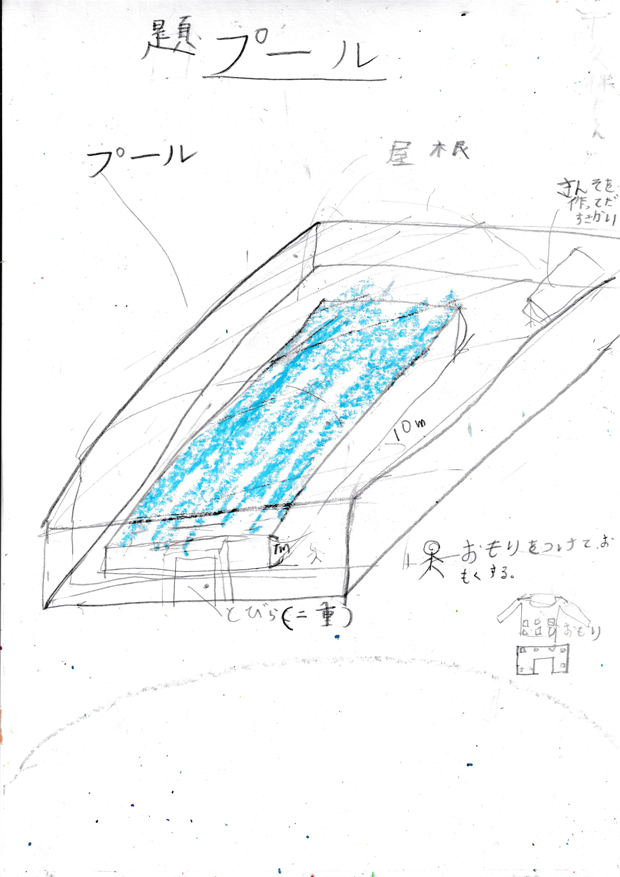 題 プール
プール
屋根
さんそを
作ってだ
すきかい
10m
1m
おもりをつけて、お
もくする。
とびら(二重)
おもり